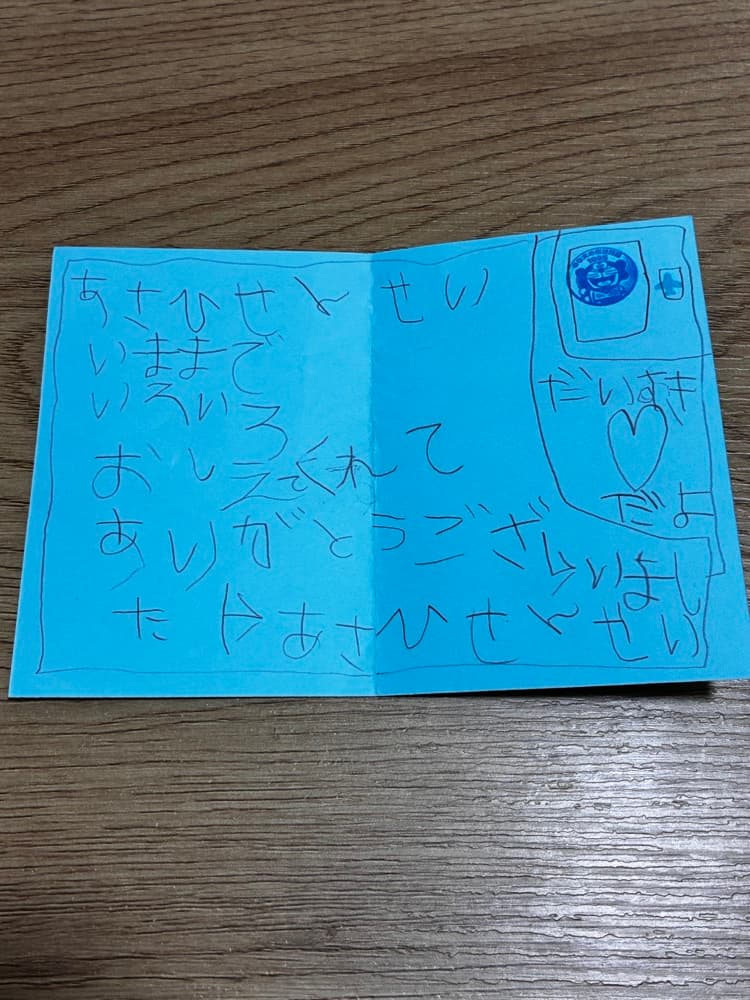 あさひせんせい
いままで
いろいろ
おしえてくれて
ありがとうございまし
た
あさひせんせい
だいすき
だよ